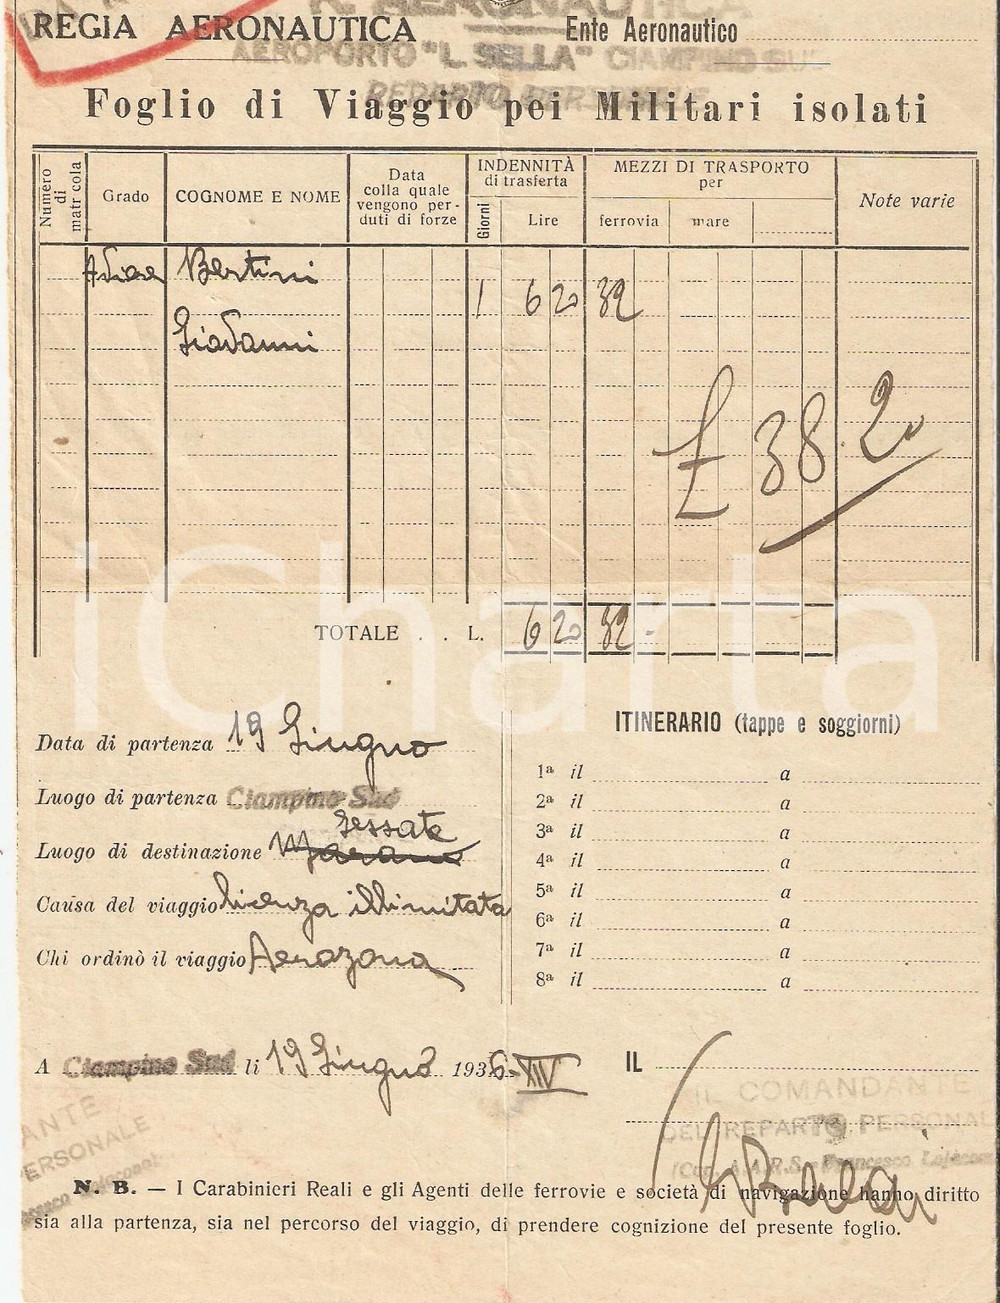 R. AERONAUTICA
REGIA AERONAUTICA
Ente Aeronautico
AEROPORTO "L. SELLA" CIAMPINO SUD
REPARTO PERSONALE
Foglio di Viaggio pei Militari isolati
Numero di matr cola
Grado
COGNOME E NOME
Data colla quale vengono per- duti di forze
INDENNITÀ di trasferta
Giorni
Lire
MEZZI DI TRASPORTO per
ferrovia
mare
Note varie
Aviere Bertini
1 6 20 32
Giovanni
£ 38.20
TOTALE . . L. 6 20 32 -
iCharta
Data di partenza 19 Giugno
Luogo di partenza Ciampino Sud
Gessate
Luogo di destinazione
Causa del viaggio licenza illimitata
Chi ordinò il viaggio Aerozona
ITINERARIO (tappe e soggiorni)
1ª il a
2ª il a
3ª il a
4ª il a
5ª il a
6ª il a
7ª il a
8ª il a
A Ciampino Sud li 19 Giugno 1936-XIV
IL
IL COMANDANTE
DEL REPARTO PERSONALE
ANTE
ERSONALE
N. B. — I Carabinieri Reali e gli Agenti delle ferrovie e società di navigazione hanno diritto
sia alla partenza, sia nel percorso del viaggio, di prendere cognizione del presente foglio.